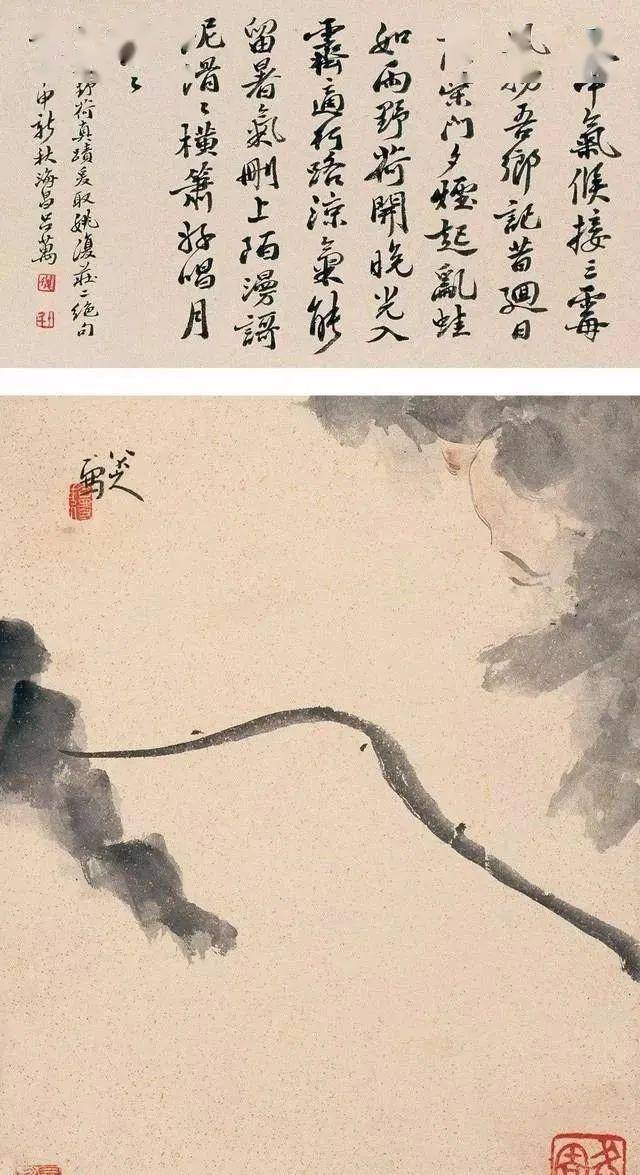 中氣候接三霉
吾鄉記昔迴日
柴門夕煙起亂蛙
如雨野荷開晚光入
霽適行路涼氣能
留暑氣刪上陌漫謌
泥滑〻橫簫好唱月
野荷真蹟爰取姚復莊二絕句
申新秋海昌呂萬
八大
寫